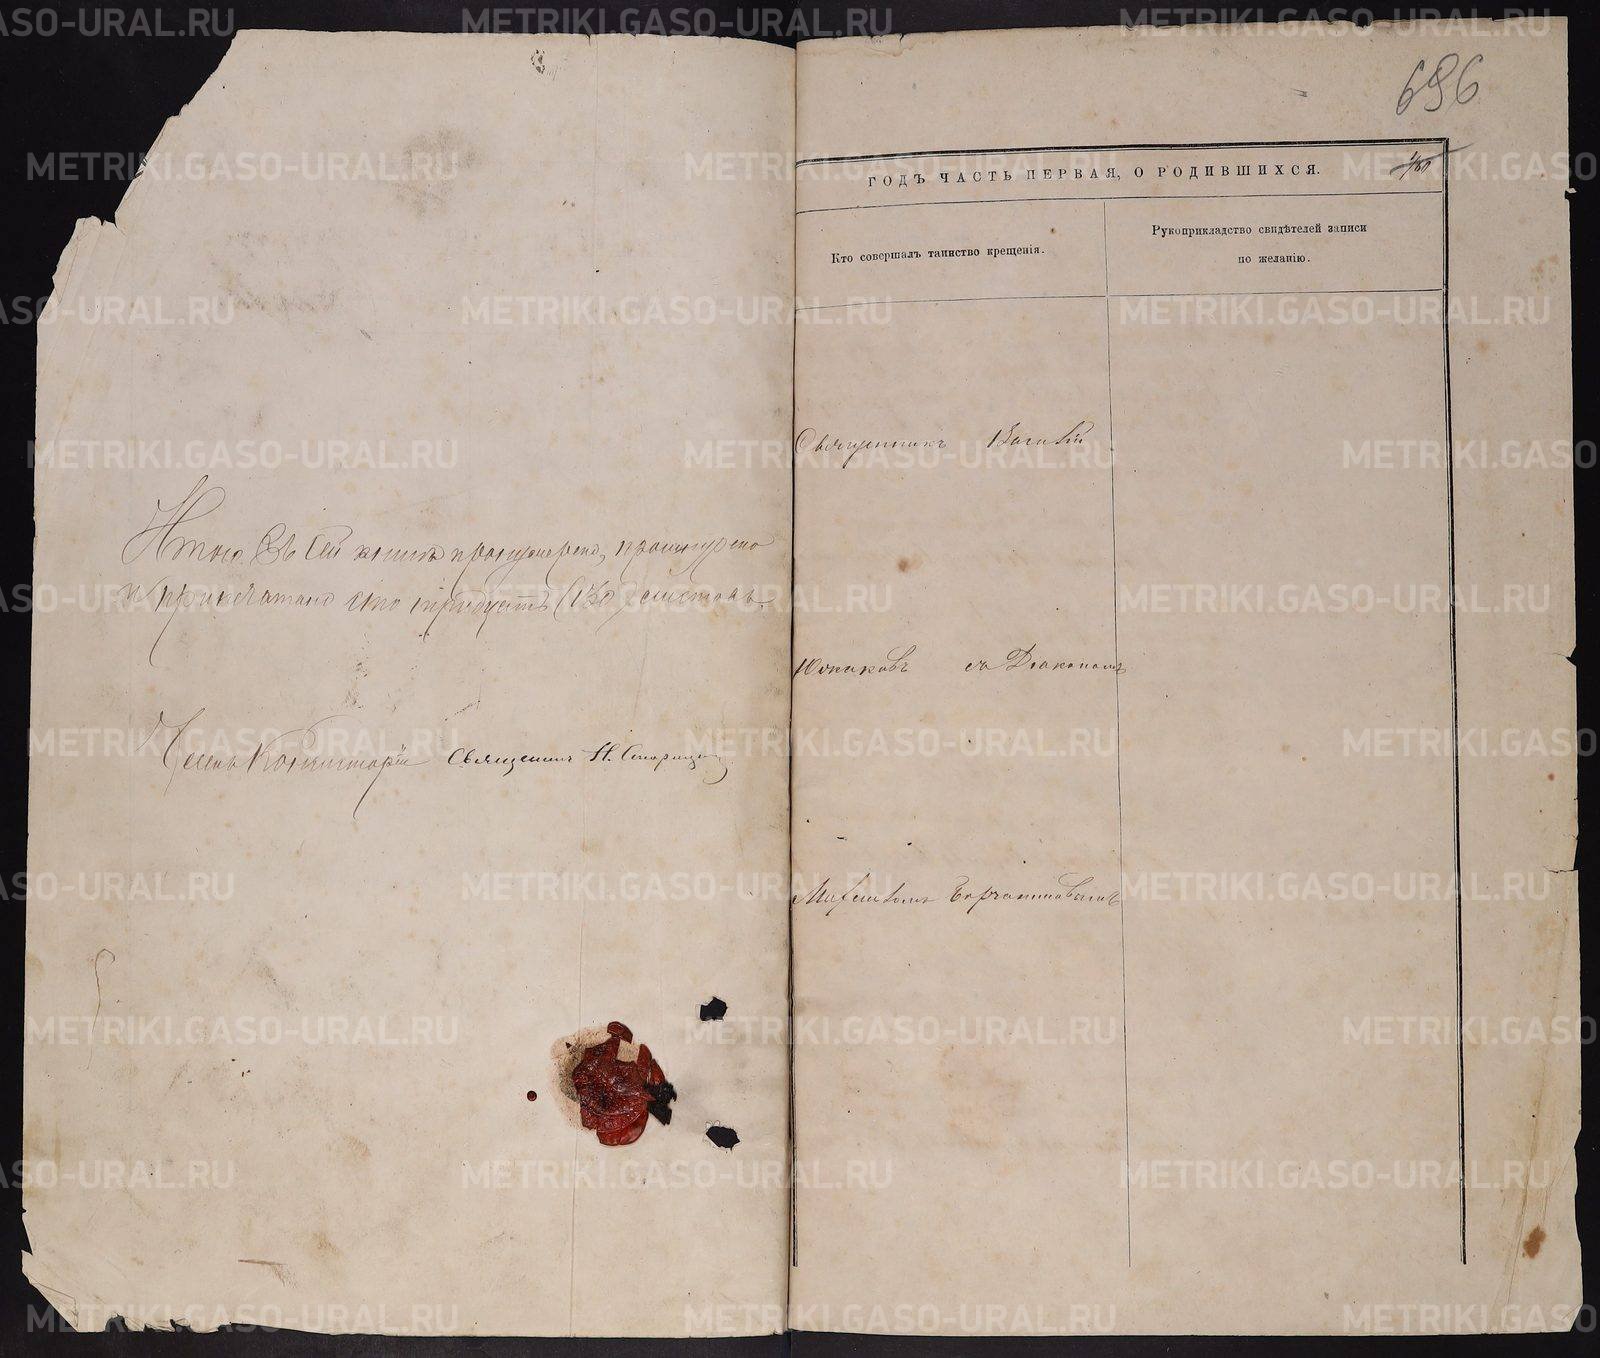 Итого въ сей книгѣ пронумеровано, прошнуровано
и припечатано сто тридцать (130) листовъ.
Членъ Консисторіи Священникъ Н.
696
ГОДЪ ЧАСТЬ ПЕРВАЯ, О РОДИВШИХСЯ.
Кто совершалъ таинство крещенія.
Рукоприкладство свидѣтелей записи
по желанію.
Священникъ Василій
съ Діакономъ
METRIKI.GASO-URAL.RU